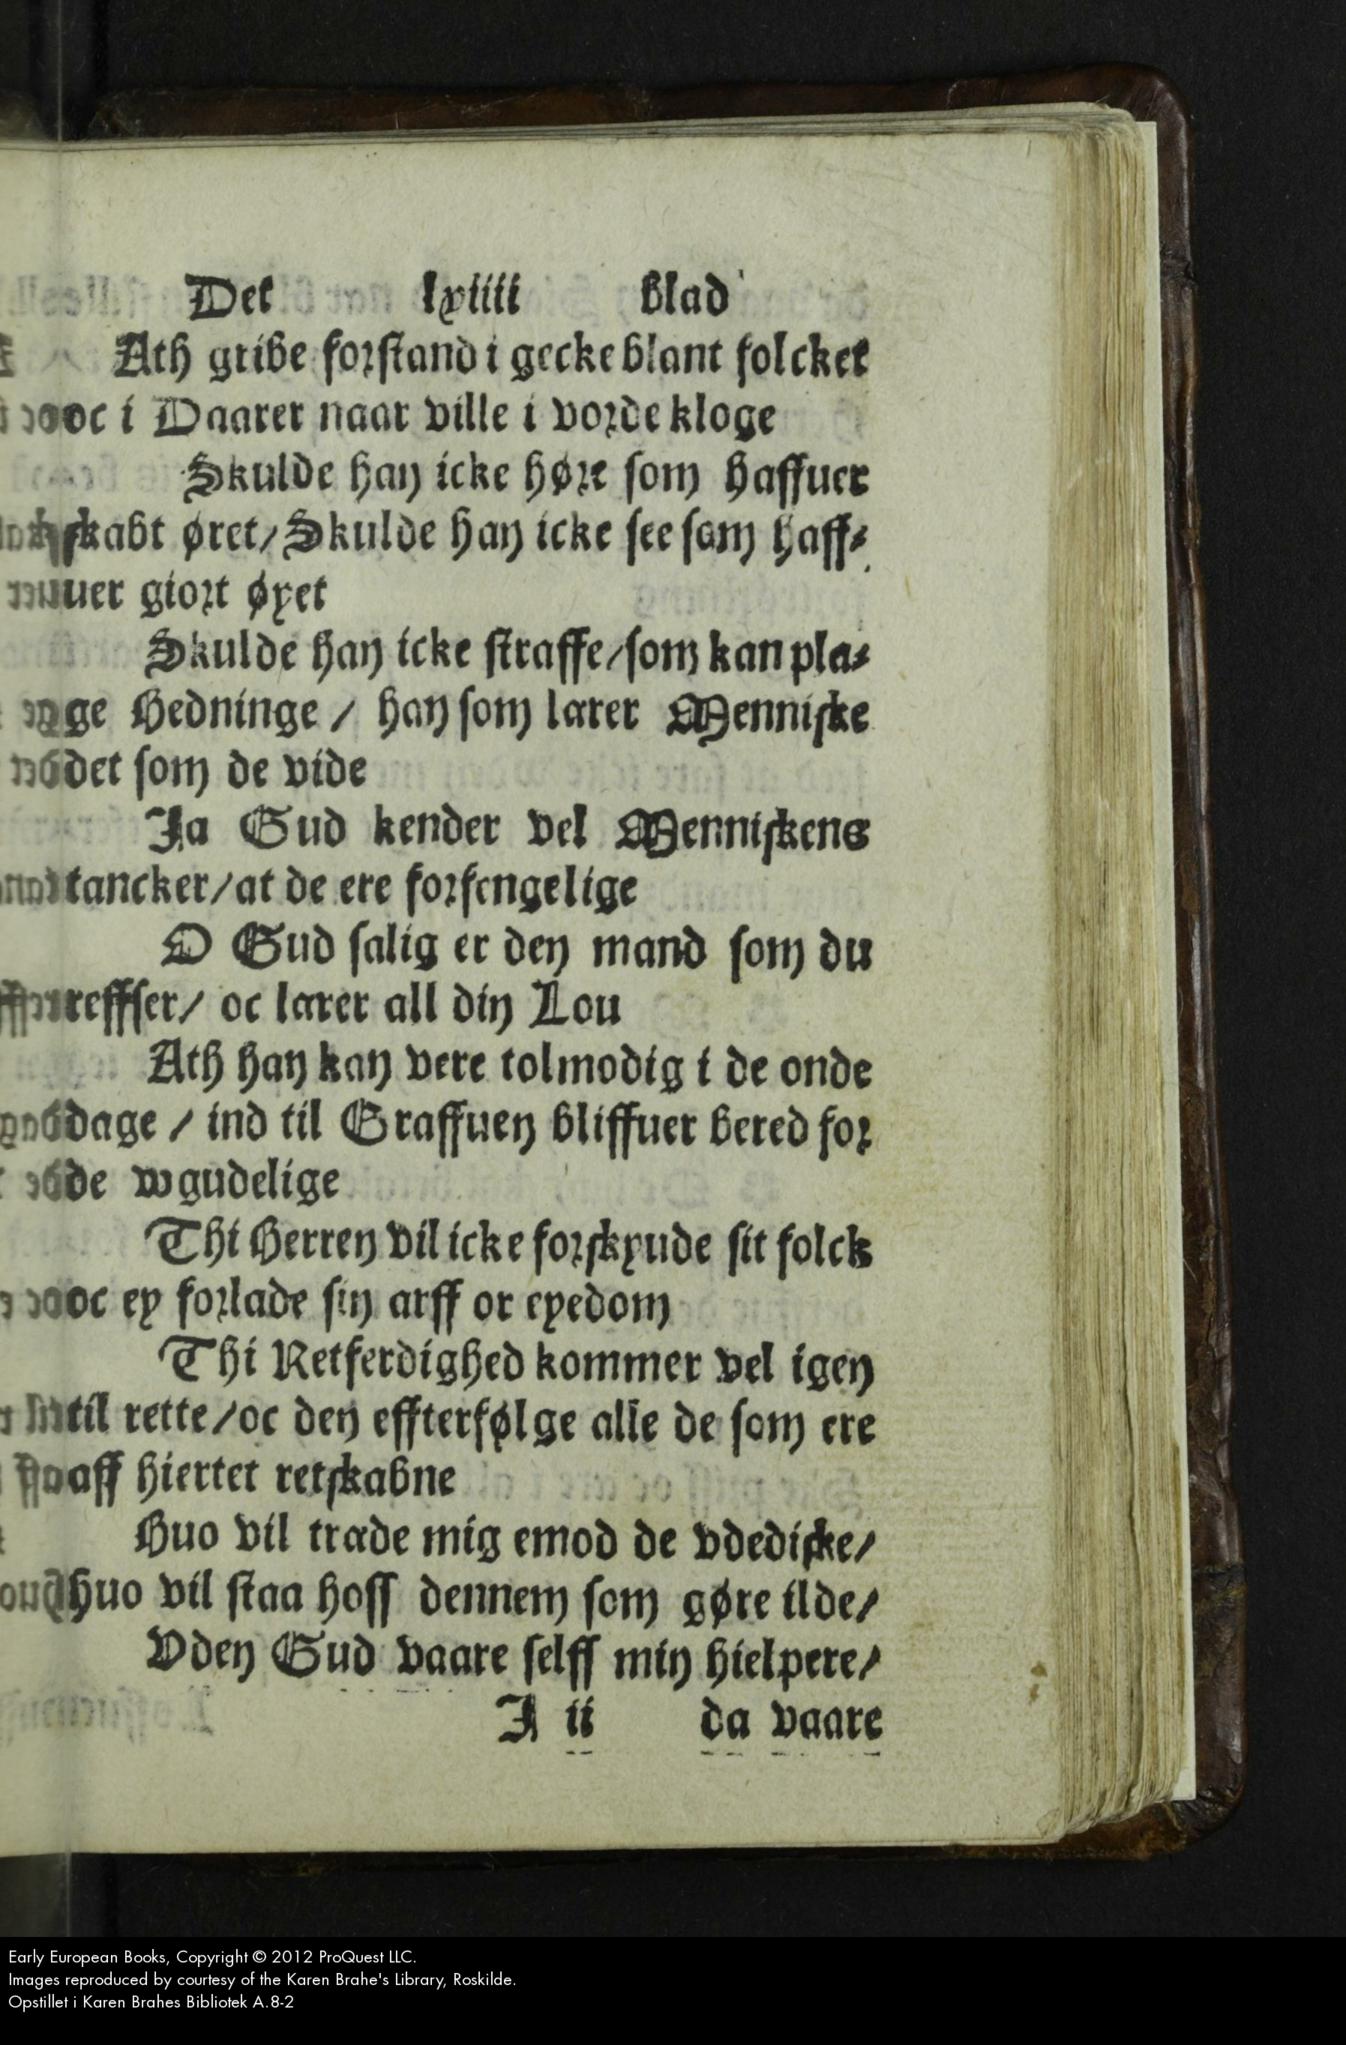 Det lxiiii blad
Ath gribe forstand i gecke blant folcket
oc i Daarer naar ville i vorde kloge
Skulde han icke høre som haffuer
skabt øret/ Skulde han icke see som haff⸗
uer giort øyet
Skulde han icke straffe/ som kan pla⸗
ge Hedninge / han som lærer Menniske
det som de vide
Ja Gud kender vel Menniskens
tancker/ at de ere forfengelige
O Gud salig er den mand som du
reffser/ oc lærer all din Lou
Ath han kan vere tolmodig i de onde
dage / ind til Graffuen bliffuer bered for
de wgudelige
Thi Herren vil icke forskyude sit folck
oc ey forlade sin arff or eyedom
Thi Retferdighed kommer vel igen
til rette/ oc den effterfølge alle de som ere
aff hiertet retskabne
Huo vil træde mig emod de vdediske/
huo vil staa hoss dennem som gøre ilde/
Vden Gud vaare selff min hielpere/
J ii da vaare
Early European Books, Copyright © 2012 ProQuest LLC.
Images reproduced by courtesy of the Karen Brahe's Library, Roskilde.
Opstillet i Karen Brahes Bibliotek A.8-2